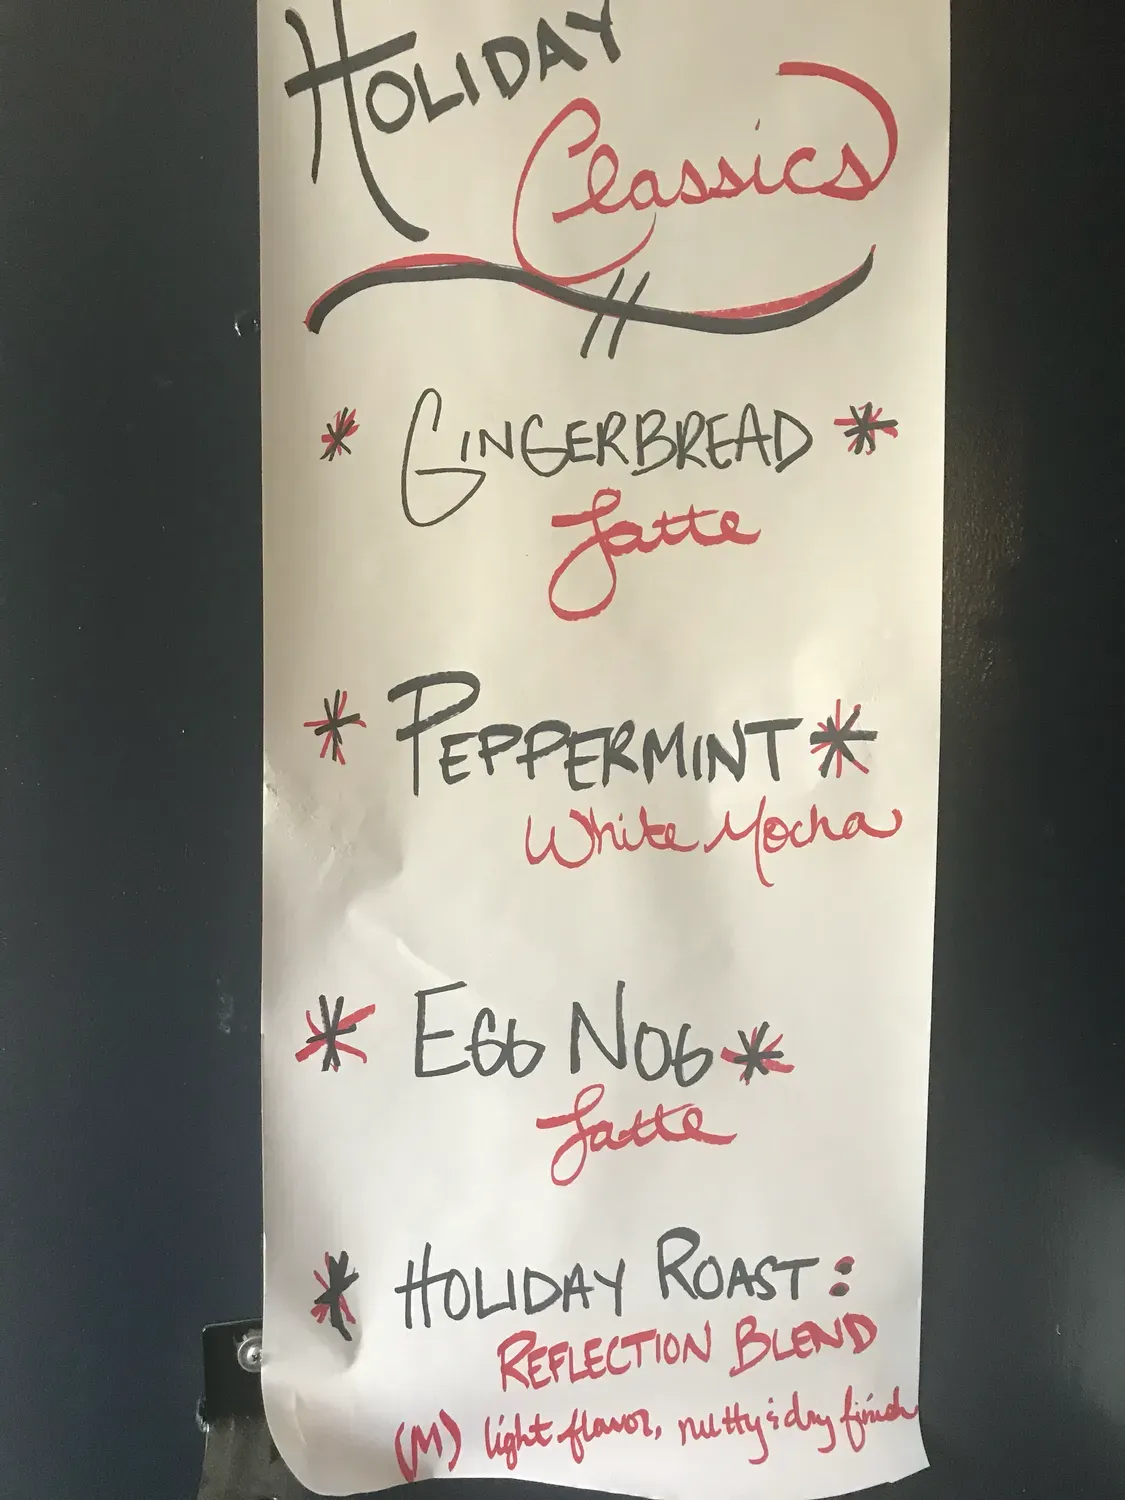 HOLIDAY
Classics
* GINGERBREAD *
Latte
* PEPPERMINT *
White Mocha
* EGG NOG *
Latte
* HOLIDAY ROAST:
REFLECTION BLEND
(M) light flavor, nutty & dry finish